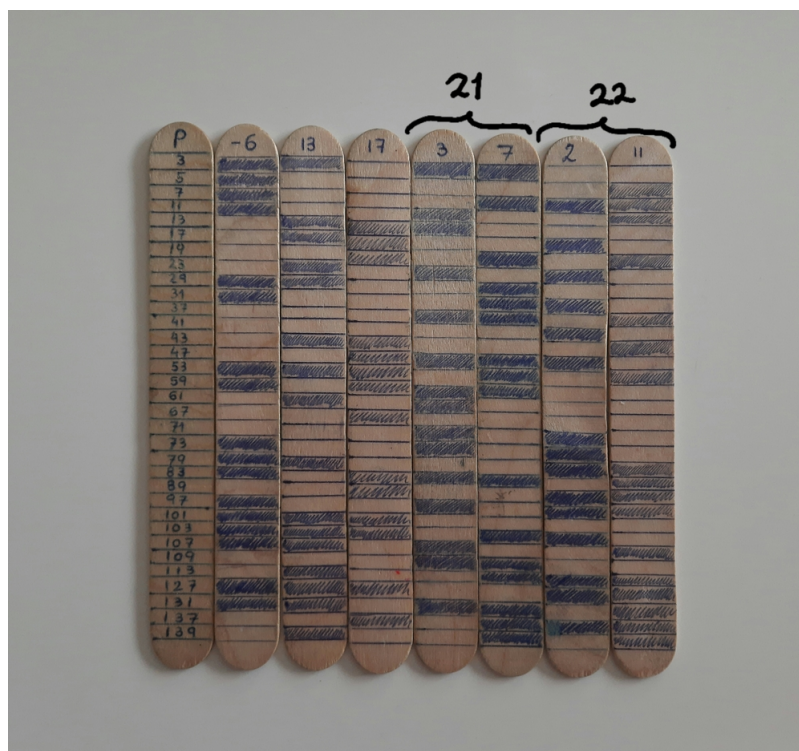 21 22
P -6 13 17 3 7 2 11
3
5
7
11
13
17
19
23
29
31
37
41
43
47
53
59
61
67
71
73
79
83
89
97
101
103
107
109
113
127
131
137
139